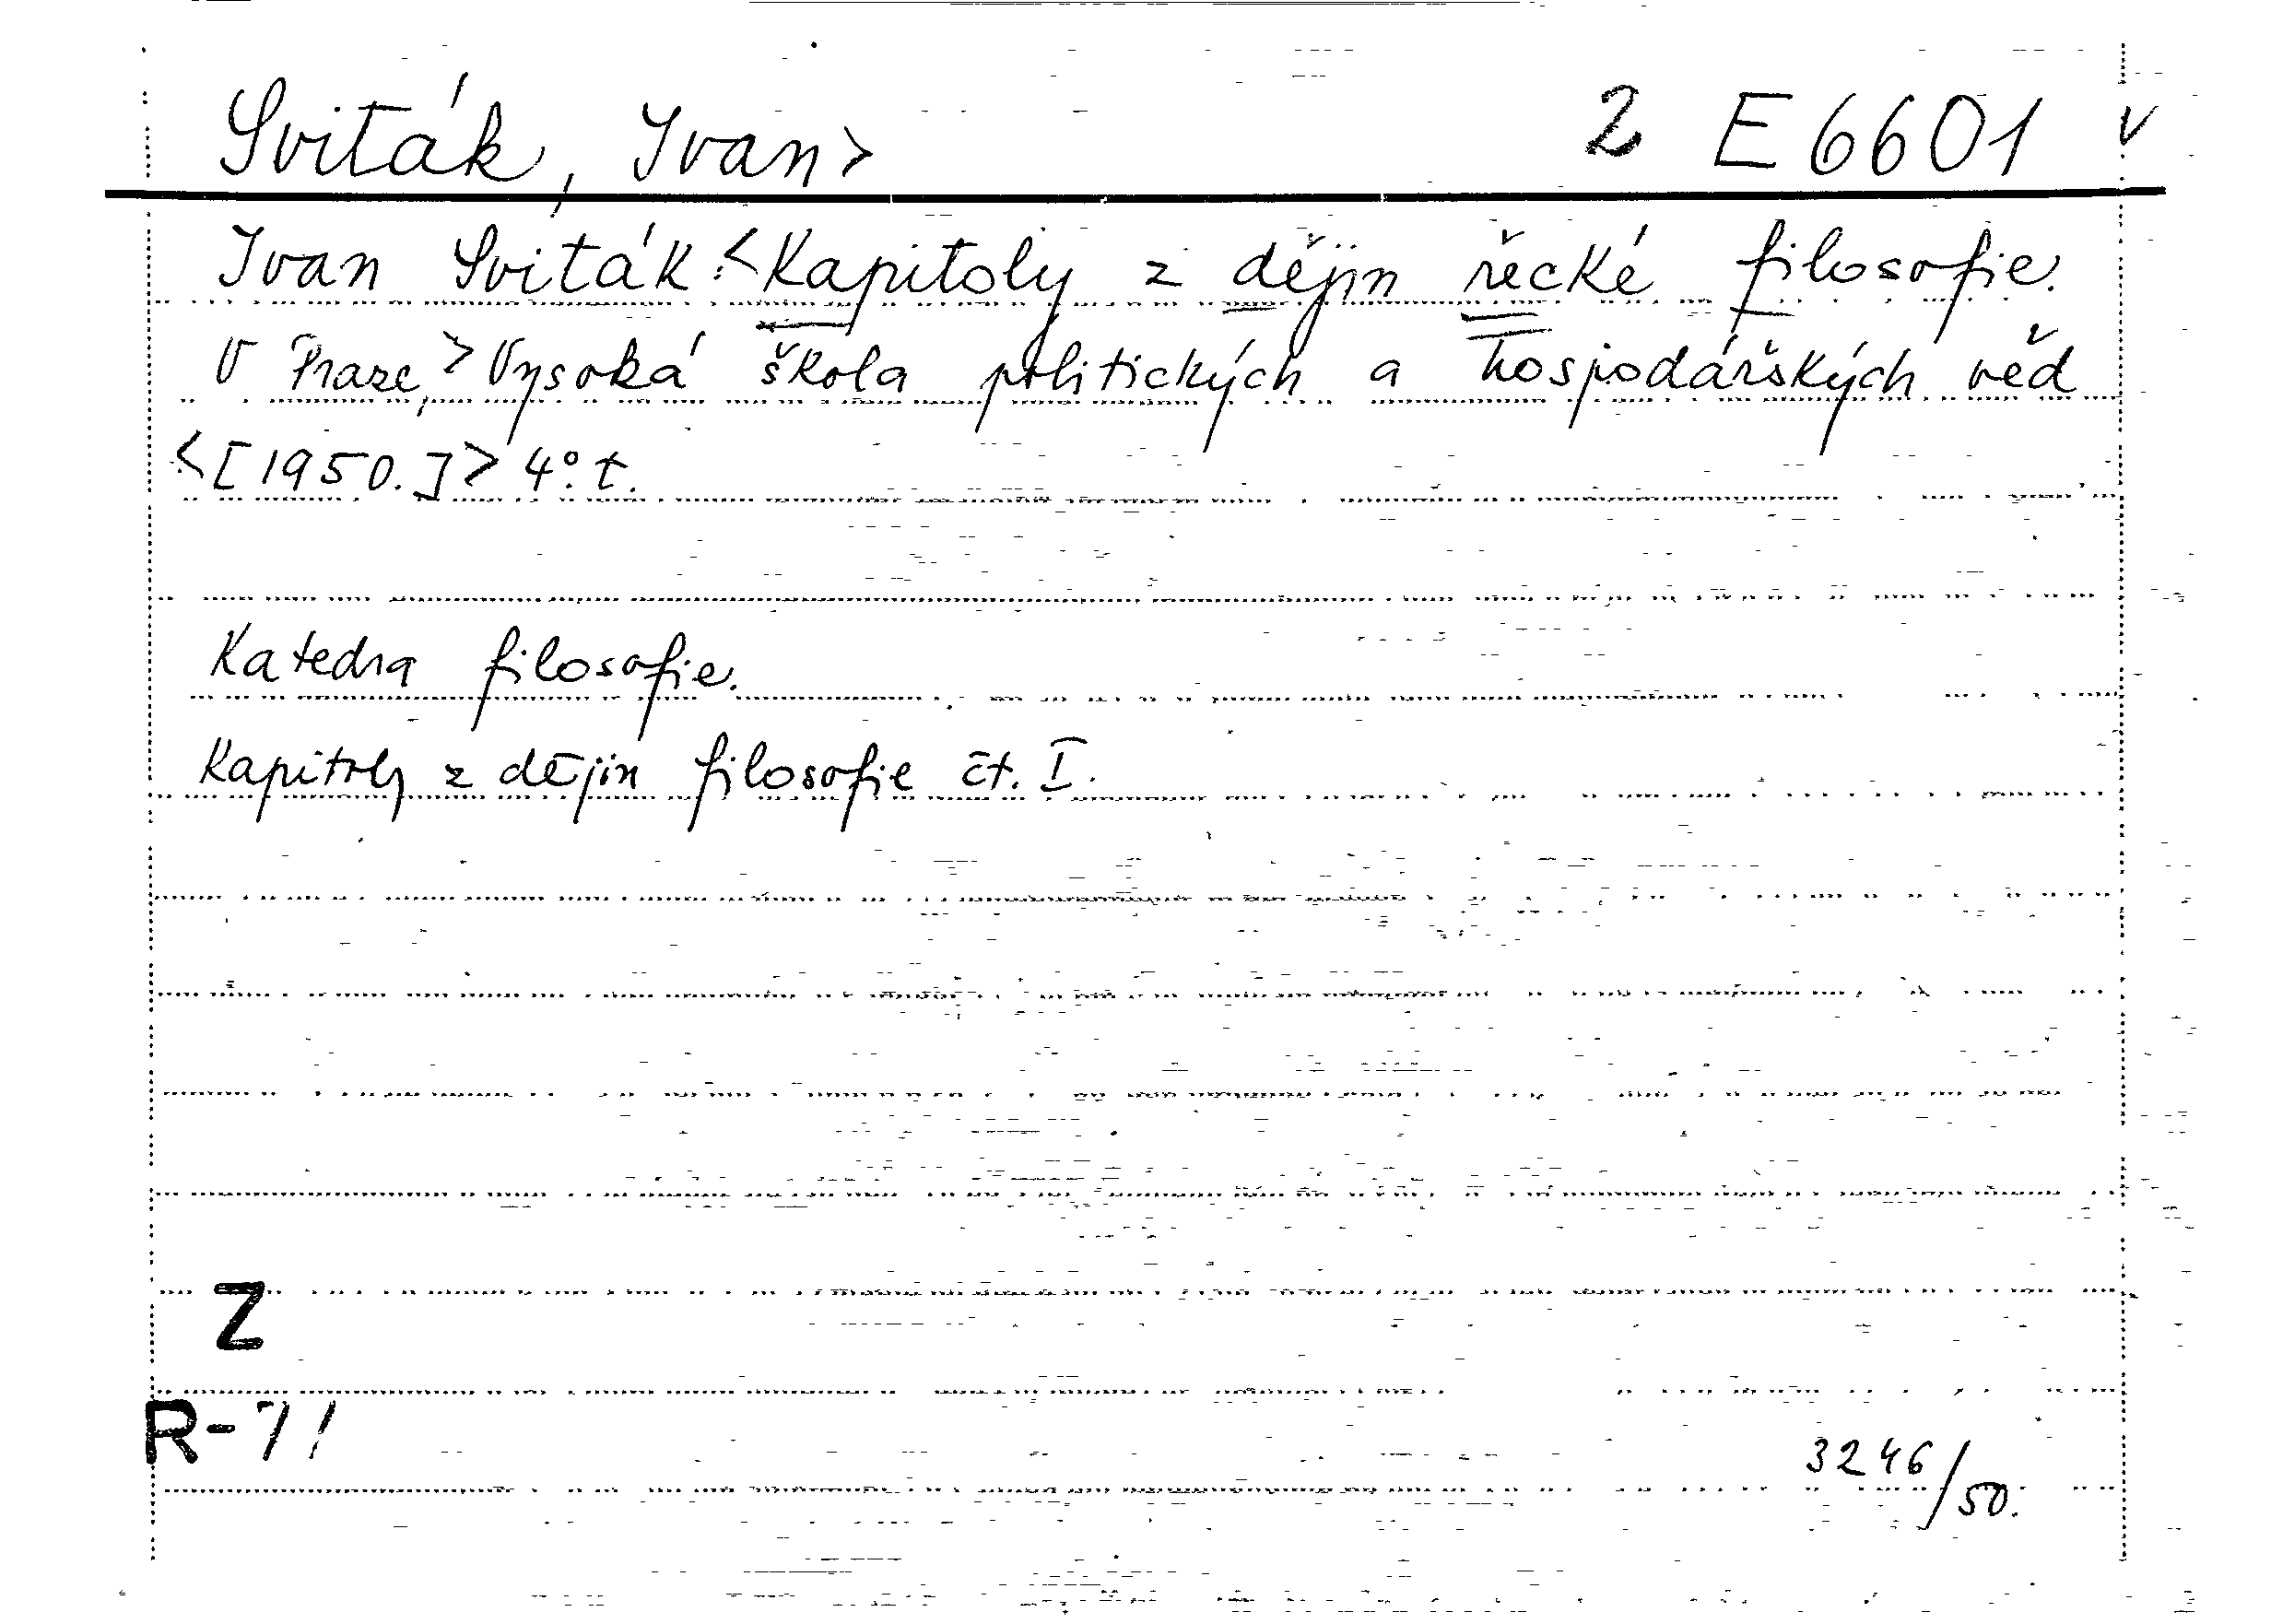 Sviták, Ivan> 2 E6601 v
Ivan Sviták:<Kapitoly z dějin řecké filosofie.
V Praze,>Vysoká škola politických a hospodářských věd
<[1950.]> 4°. t.
Katedra filosofie.
Kapitoly z dějin filosofie čt. I.
Z
R-71
3246/50.